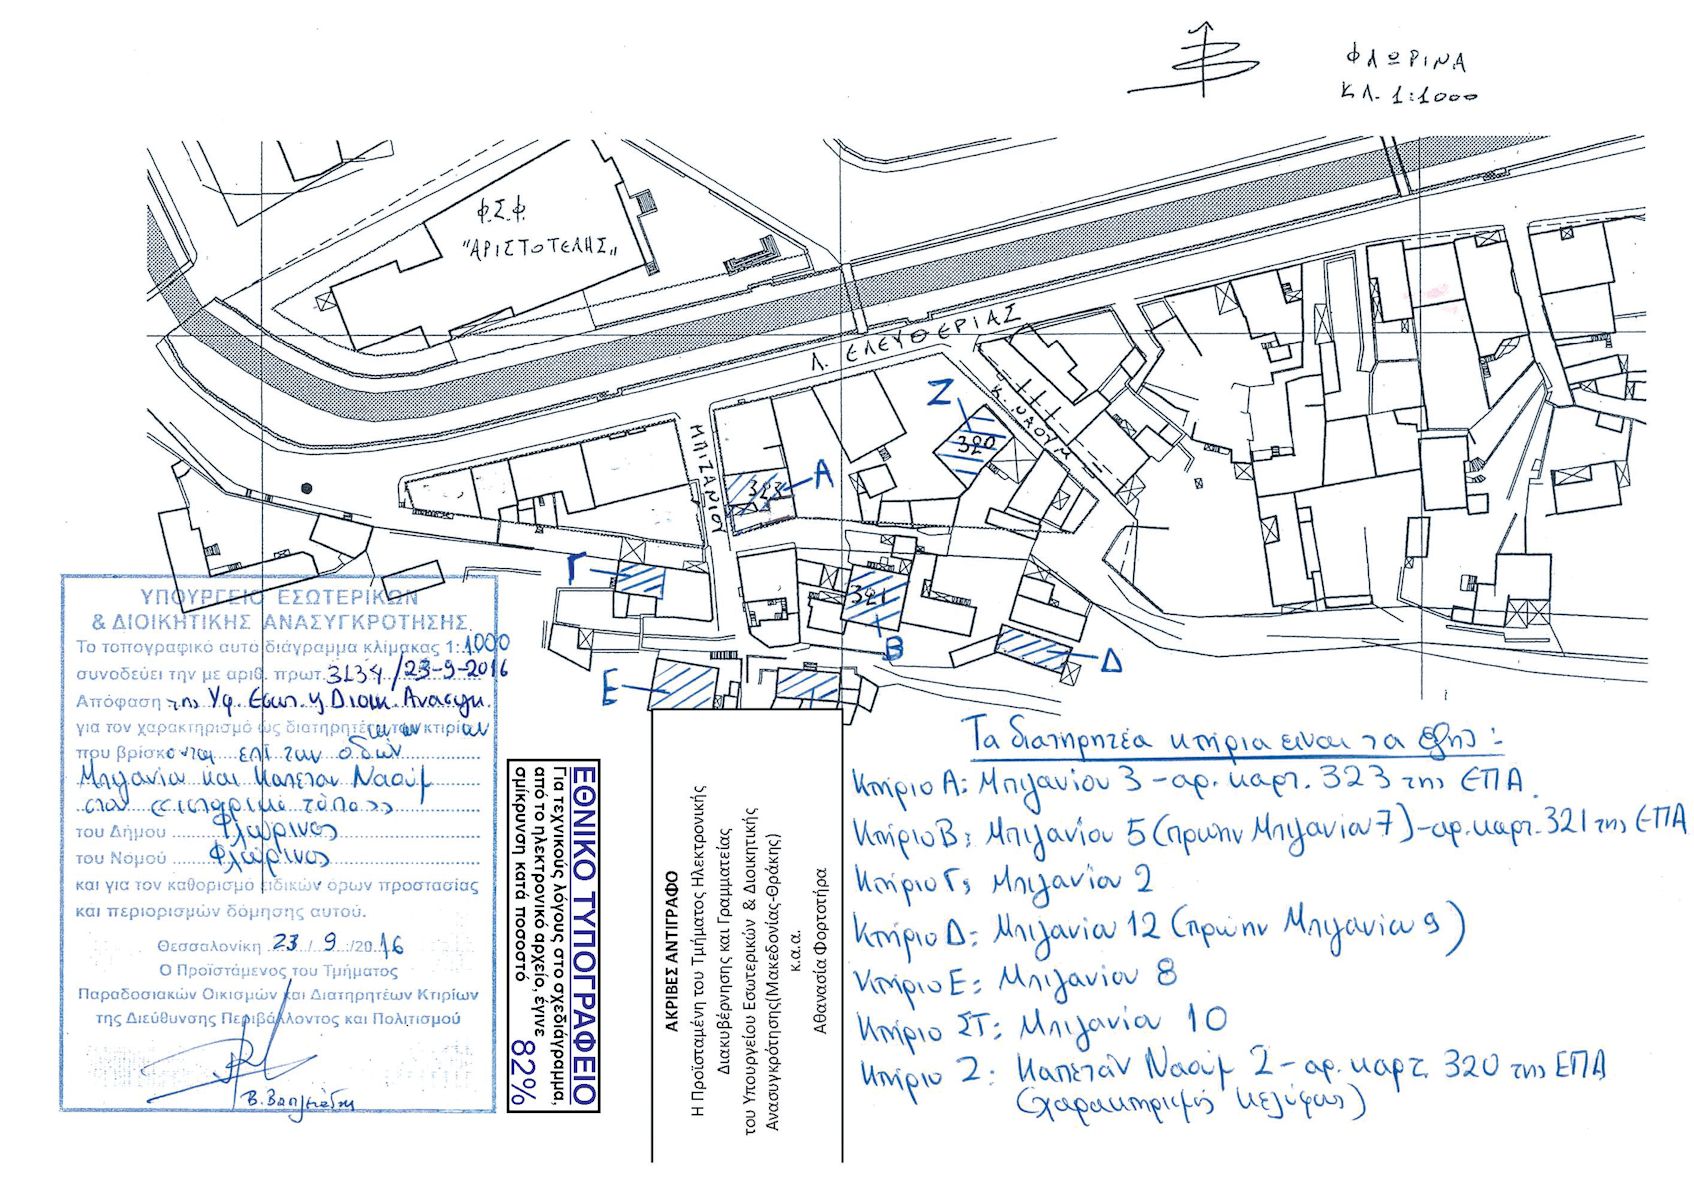 ΦΛΩΡΙΝΑ
ΚΛ. 1:1000
Φ.Σ.Φ.
"ΑΡΙΣΤΟΤΕΛΗΣ"
Λ. ΕΛΕΥΘΕΡΙΑΣ
Κ. ΝΑΟΥΜ
ΜΠΙΖΑΝΙΟΥ
Ζ
320
323
Α
Γ
321
Β
Δ
Ε
ΥΠΟΥΡΓΕΙΟ ΕΣΩΤΕΡΙΚΩΝ
& ΔΙΟΙΚΗΤΙΚΗΣ ΑΝΑΣΥΓΚΡΟΤΗΣΗΣ
Το τοπογραφικό αυτό διάγραμμα κλίμακας 1:1000
συνοδεύει την με αριθ. πρωτ. 3134/23-9-2016
Απόφαση της Υφ. Εσωτ. & Διοικ. Ανασυγκ.
για τον χαρακτηρισμό ως διατηρητέων των κτιρίων
που βρίσκονται επί των οδών
Μπιζανίου και Καπετάν Ναούμ
στον «ιστορικό τόπο»
του Δήμου Φλώρινας
του Νομού Φλώρινας
και για τον καθορισμό ειδικών όρων προστασίας
και περιορισμών δόμησης αυτού.
Θεσσαλονίκη 23/9/2016
Ο Προϊστάμενος του Τμήματος
Παραδοσιακών Οικισμών και Διατηρητέων Κτιρίων
της Διεύθυνσης Περιβάλλοντος και Πολιτισμού
ΕΘΝΙΚΟ ΤΥΠΟΓΡΑΦΕΙΟ
Για τεχνικούς λόγους στο σχεδιάγραμμα,
από το ηλεκτρονικό αρχείο, έγινε
σμίκρυνση κατά ποσοστό
82%
ΑΚΡΙΒΕΣ ΑΝΤΙΓΡΑΦΟ
Η Προϊσταμένη του Τμήματος Ηλεκτρονικής
Διακυβέρνησης και Γραμματείας
του Υπουργείου Εσωτερικών & Διοικητικής
Ανασυγκρότησης(Μακεδονίας-Θράκης)
κ.α.α.
Αθανασία Φορτοτήρα
Τα διατηρητέα κτήρια είναι τα εξής:
Κτήριο Α: Μπιζανίου 3 - αρ. καρτ. 323 της ΕΠΑ
Κτήριο Β: Μπιζανίου 5 (πρώην Μπιζανίου 7) - αρ. καρτ. 321 της ΕΠΑ
Κτήριο Γ: Μπιζανίου 2
Κτήριο Δ: Μπιζανίου 12 (πρώην Μπιζανίου 9)
Κτήριο Ε: Μπιζανίου 8
Κτήριο ΣΤ: Μπιζανίου 10
Κτήριο Ζ: Καπετάν Ναούμ 2 - αρ. καρτ. 320 της ΕΠΑ
(χαρακτηρισμός κελύφους)